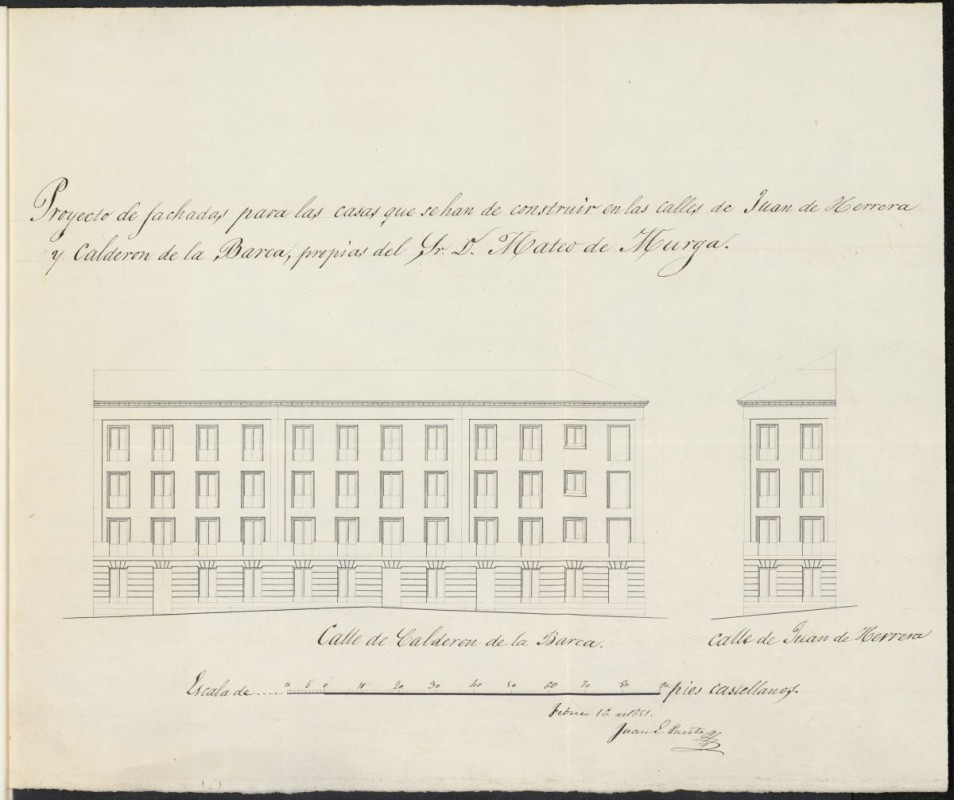 Proyecto de fachadas para las casas que se han de construir en las calles de Juan de Herrera
y Calderon de la Barca, propias del Sr. D. Mateo de Murga.
Calle de Calderon de la Barca.
calle de Juan de Herrera
Escala de .... 10 5 0 10 20 30 40 50 60 70 80 90 pies castellanos.
Febrero 16 1851.
Juan E. Puente